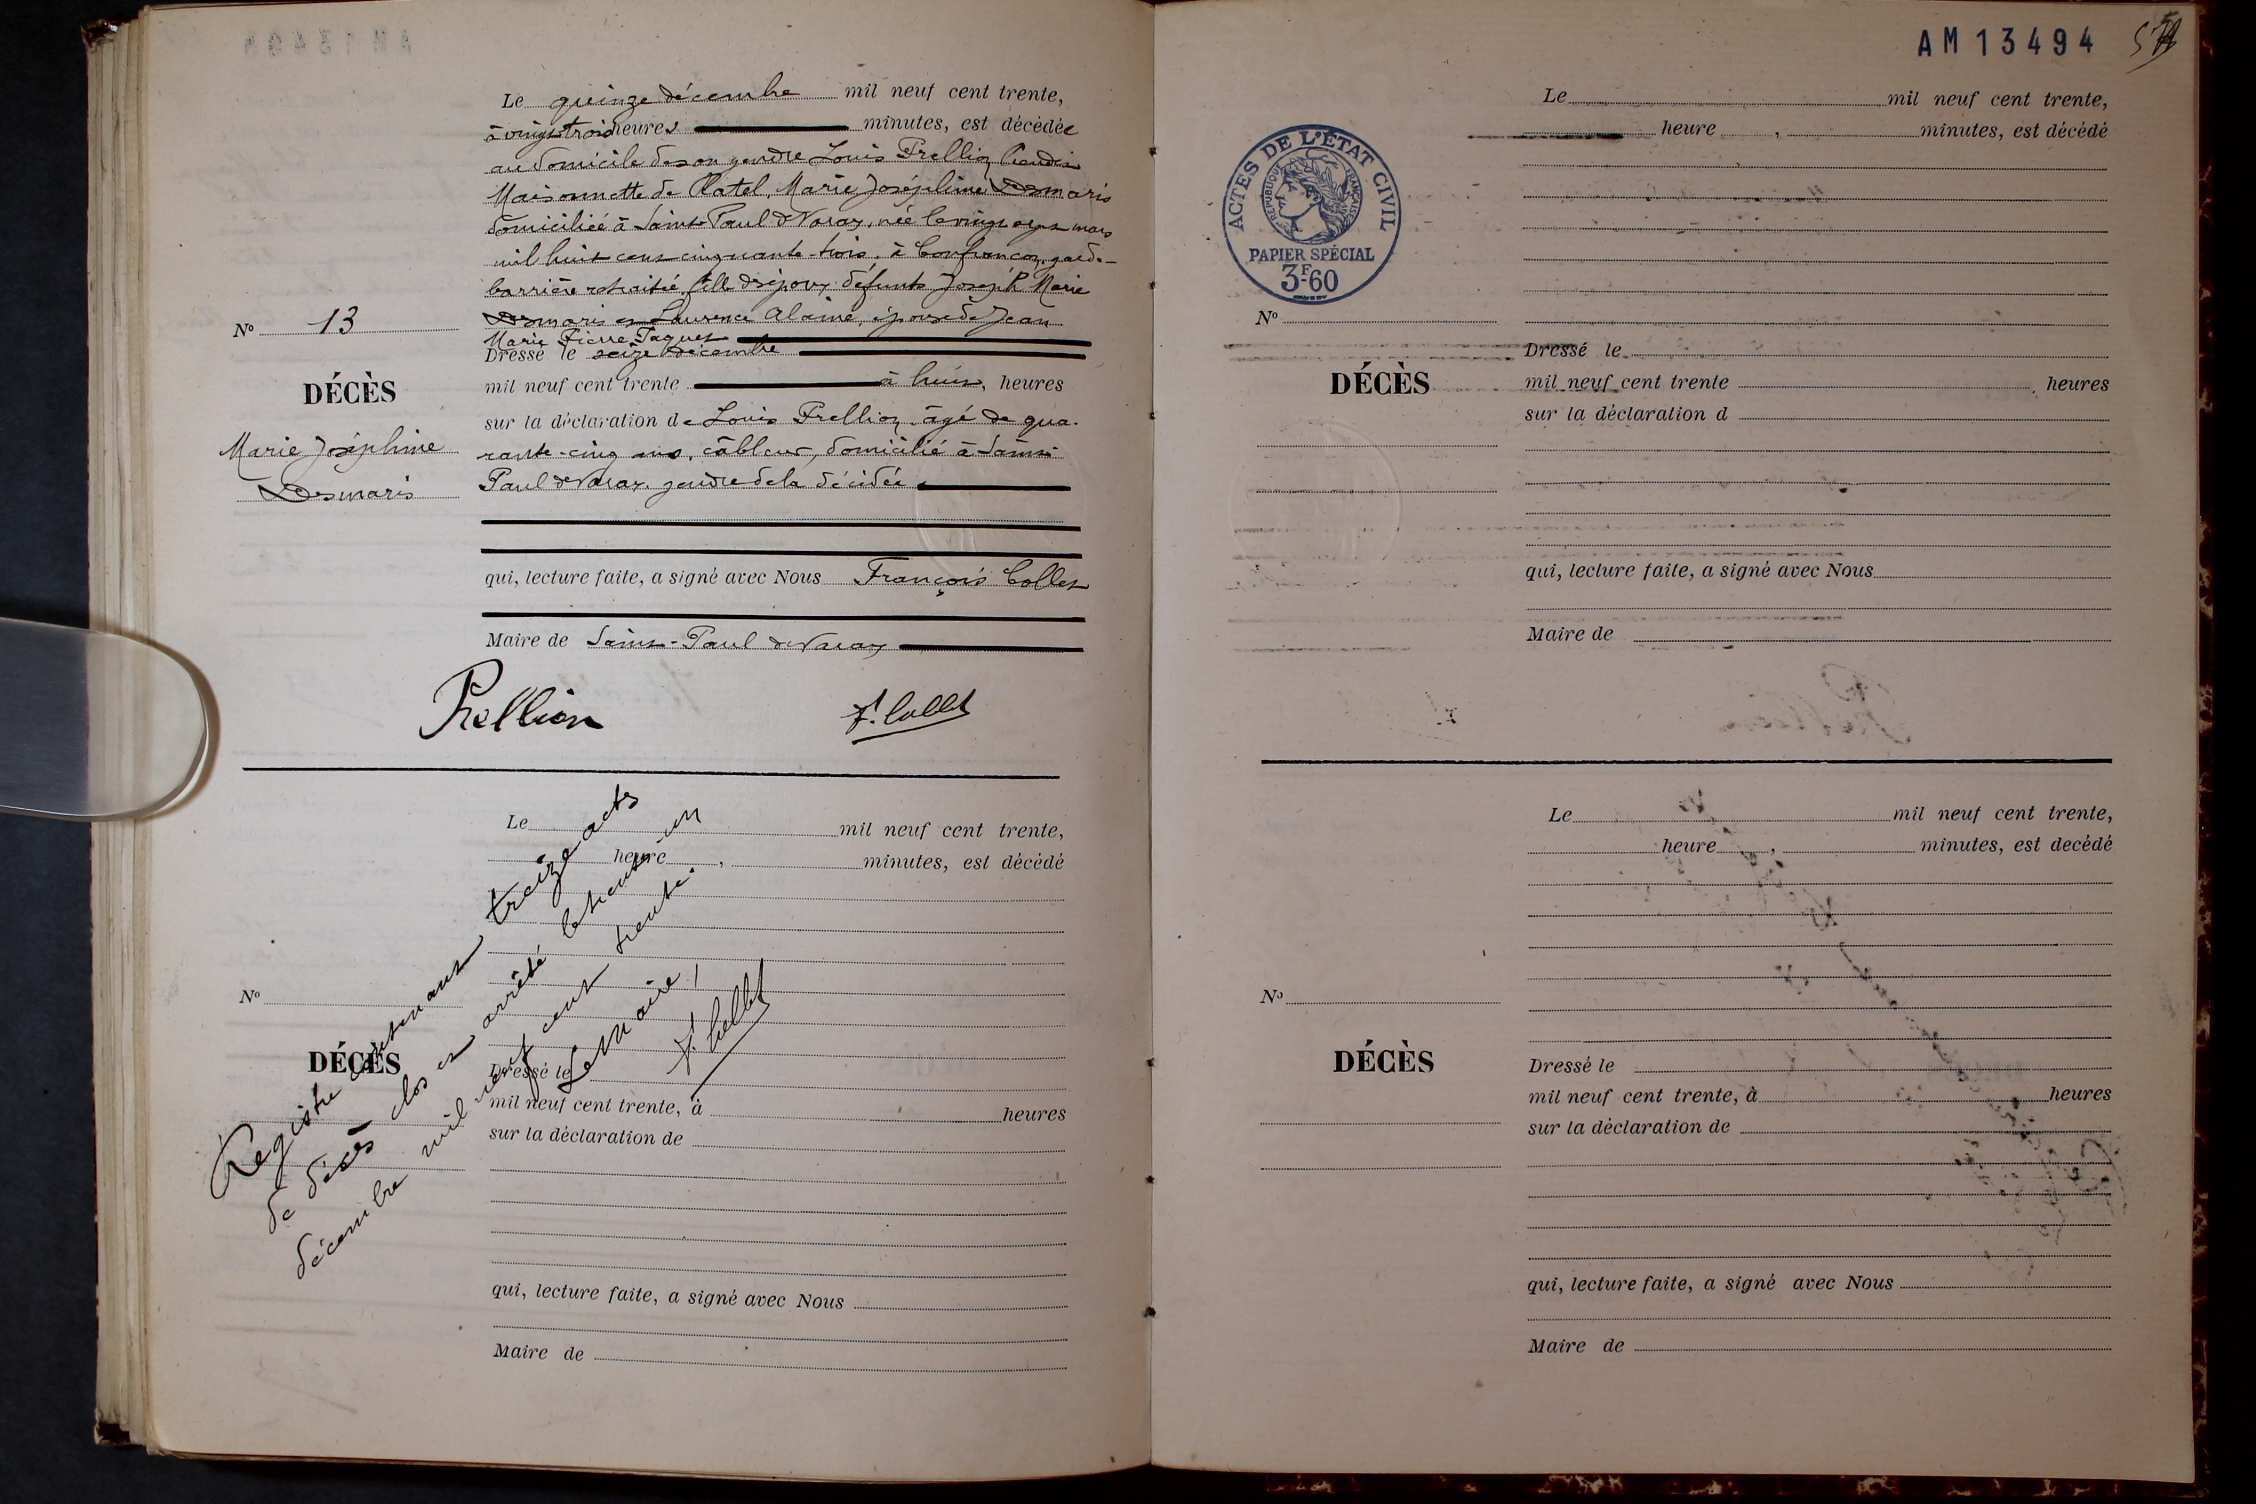 Le quinze décembre mil neuf cent trente,
à vingt trois heures minutes, est décédée
au domicile de son gendre Louis Prellion
Maisonnette de Ratel, Marie Joséphine Desmaris
domiciliée à Saint Paul de Varax, née le vingt sept mars
mil huit cent cinquante-trois, à Confrançon, garde-
barrière retraitée, fille des époux défunts Joseph Marie
Desmaris et Laurence Alaine, épouse de Jean
Marie Pierre Paquet
Nº 13
DÉCÈS
Marie Joséphine
Desmaris
Dressé le seize décembre
mil neuf cent trente à huit heures
sur la déclaration de Louis Prellion, âgé de qua-
rante-cinq ans, câbleur, domicilié à Saint
Paul de Varax, gendre de la décédée
qui, lecture faite, a signé avec Nous François Collet
Maire de Saint-Paul de Varax
Prellion
F. Collet
Le mil neuf cent trente,
heure , minutes, est décédé
Nº
DÉCÈS
Dressé le
mil neuf cent trente, à heures
sur la déclaration de
qui, lecture faite, a signé avec Nous
Maire de
Registre contenant treize actes
de décès clos et arrêté le trente-un
décembre mil neuf cent trente.
Le Maire,
F. Collet
AM13494
ACTES DE L'ÉTAT CIVIL
RÉPUBLIQUE FRANÇAISE
PAPIER SPÉCIAL
3F-60
Le mil neuf cent trente,
heure , minutes, est décédé
Nº
DÉCÈS
Dressé le
mil neuf cent trente , heures
sur la déclaration d
qui, lecture faite, a signé avec Nous
Maire de
Le mil neuf cent trente,
heure , minutes, est decédé
Nº
DÉCÈS
Dressé le
mil neuf cent trente, à heures
sur la déclaration de
qui, lecture faite, a signé avec Nous
Maire de